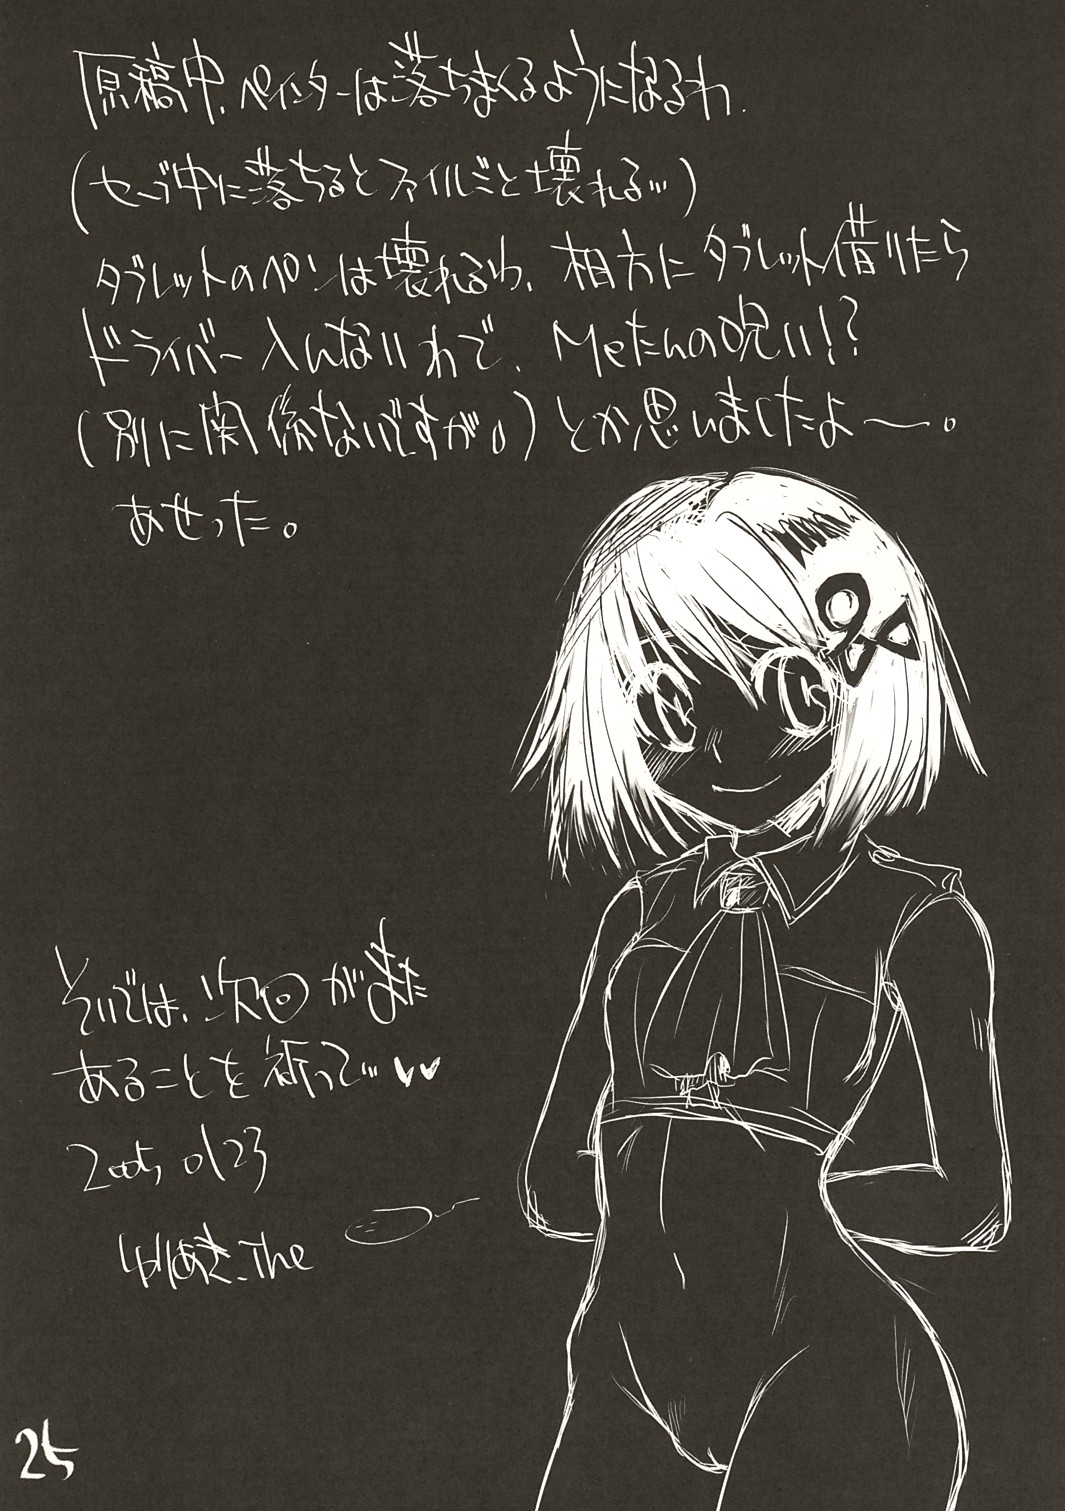 原稿中、ペインターは落ちまくるようになるわ、
(セーブ中に落ちるとファイルごと壊れる…)
タブレットのペンは壊れるわ、相方にタブレット借りたら
ドライバー入んないわで、Meたんの呪い!?
(別に関係ないですが。)とか思いましたよ〜。
あせった。
そいでは、次回がまた
あることを祈って…♥♥
2005 0123
ゆりあき.The
25